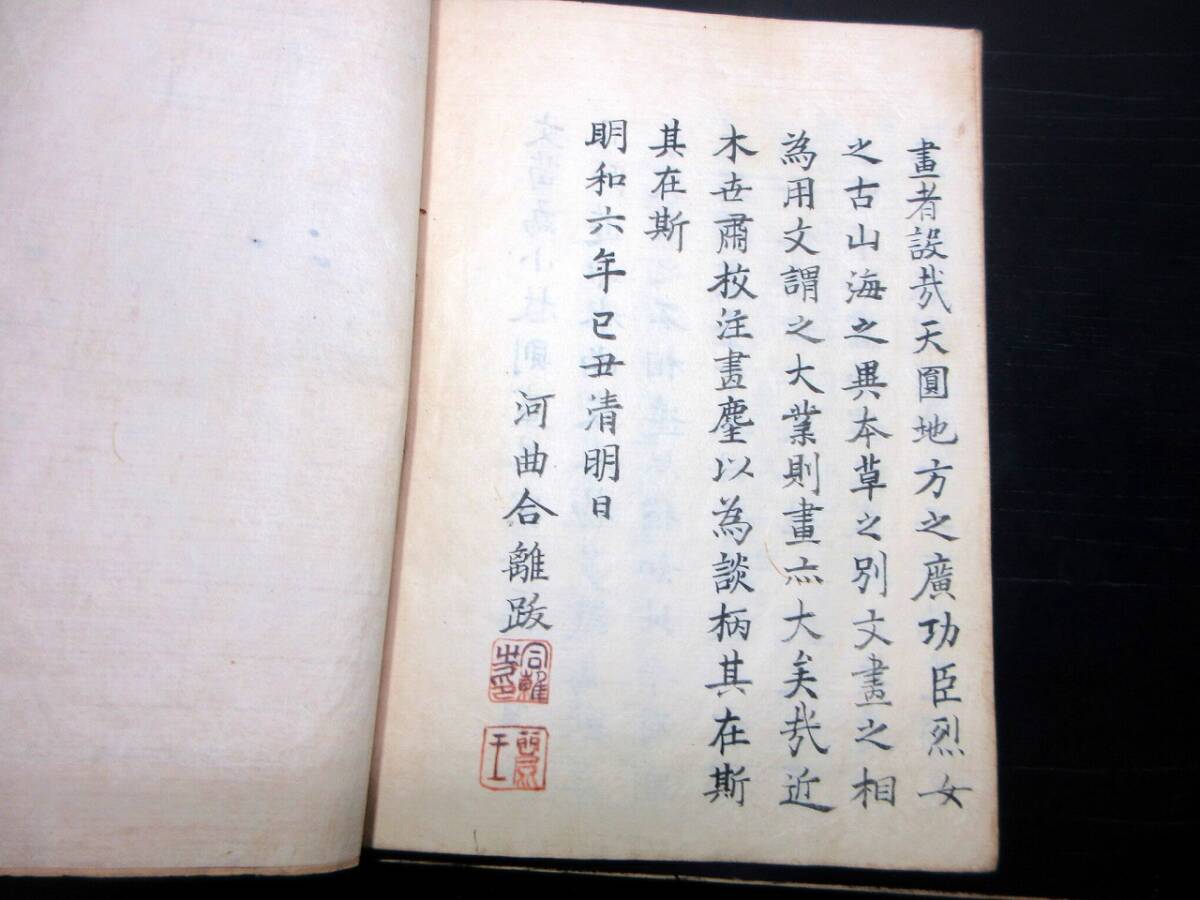 畫者設㢤天圓地方之廣功臣烈女
之古山海之異本草之別文畫之相
為用文謂之大業則畫亦大矣㢤近
木世肅校注畫塵以為談柄其在斯
其在斯
明和六年己丑清明日
河曲合離跋